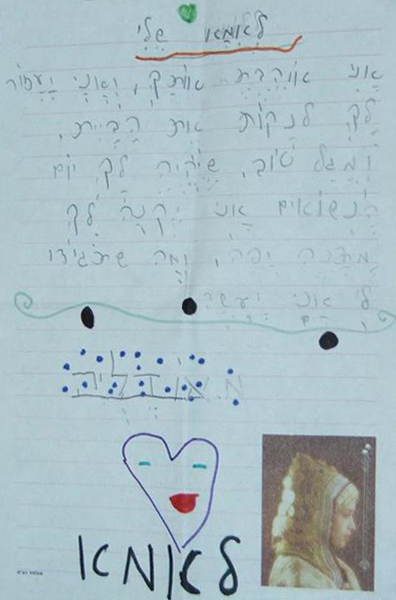 לאמא שלי
אני אוהבת אותך, ואני יעזור
לך לנקות את הבית,
ומזל טוב, שיהיה לך יום
הנשואים אני יקנה לך
מתנה יפה, ומה שתגידו
לי אני יעשה
לאמא